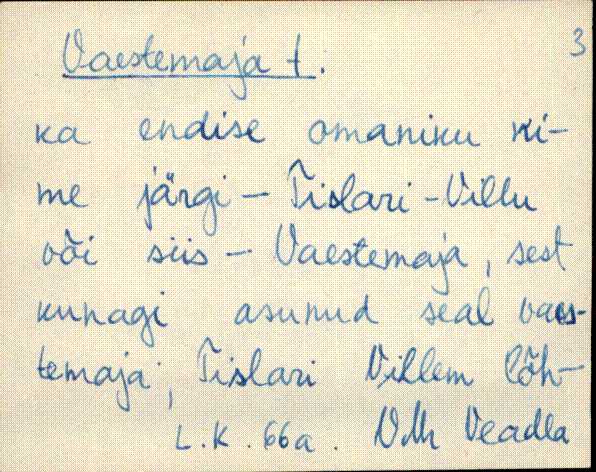 3
Vaestemaja t.
ka endise omaniku ni-
me järgi - Tislari - Villu
või siis - Vaestemaja, sest
kunagi asunud seal vaes-
temaja; Tislari Villem lõh-
L.K. 66a. Veadla